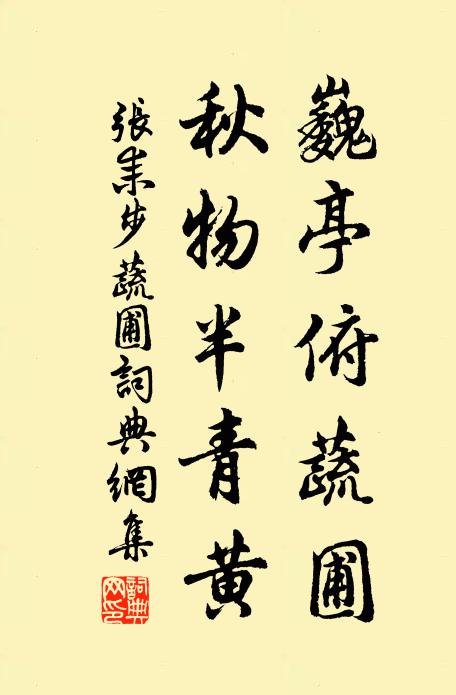 巍亭俯蔬圃
秋物半青黄
張耒步蔬圃詞典網集
詞典網印